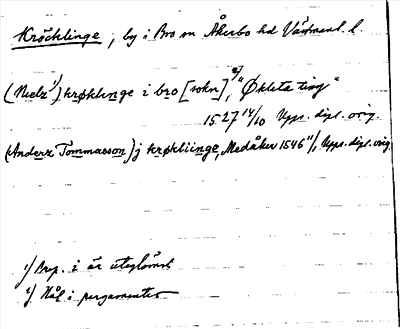 Kröcklinge, by i Bro sn Åkerbo hd Västmanl. l.
(Nielz¹⁾) krøklinge i bro [sokn],²⁾ "Økleta ting"
1527 14/10 Upps. dipl. orig.
(Anderz Tommasson) j krøkliinge, Medåker 1546 11/1, Upps. dipl. orig
¹⁾ Prep. i är uteglömd
²⁾ Hål i pergamentet